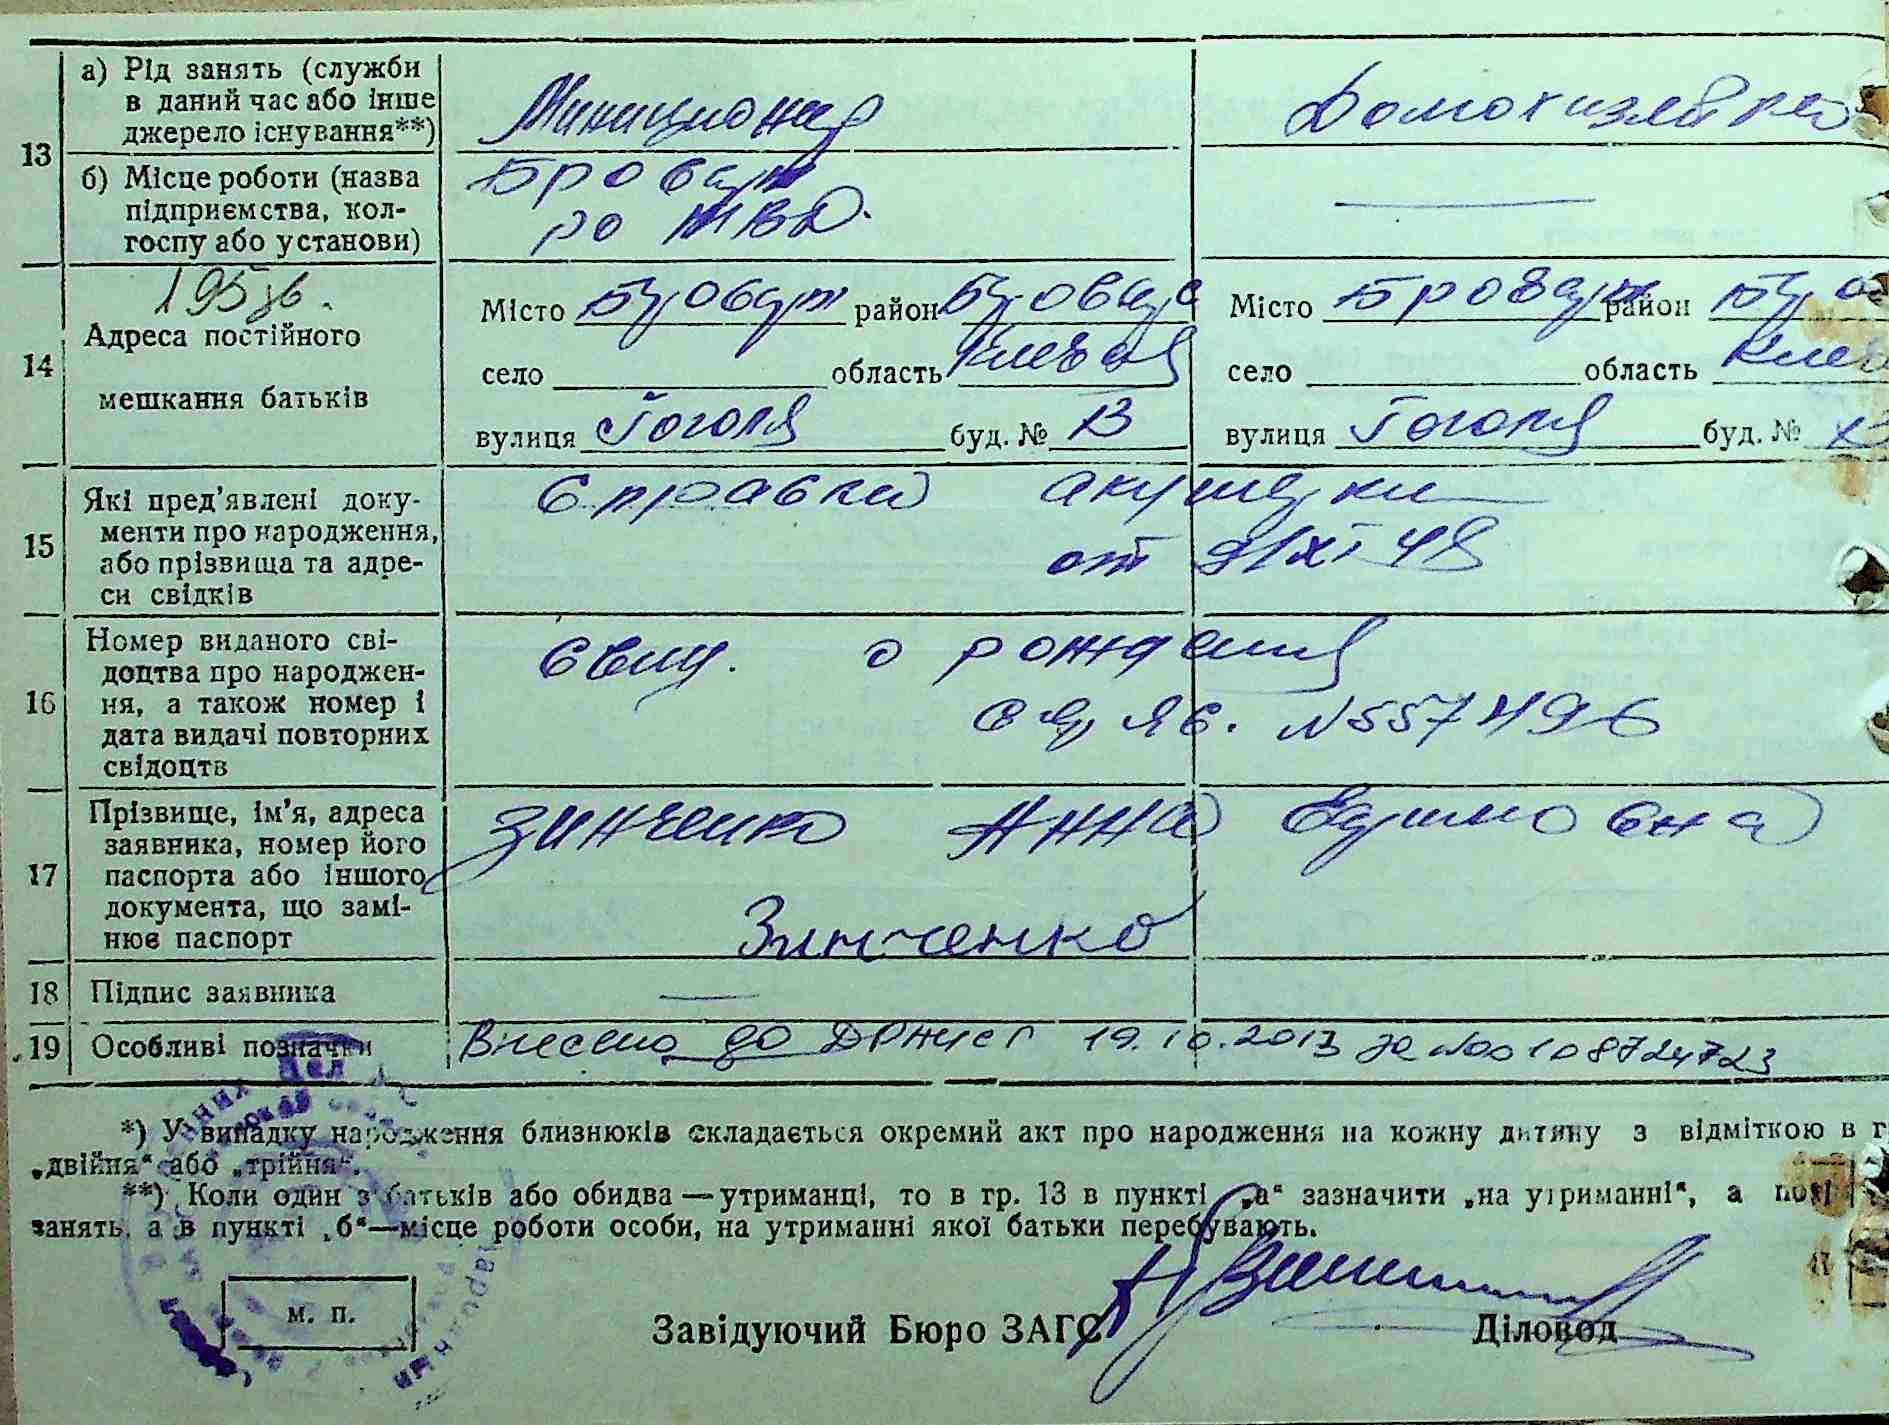 13
а) Рід занять (служби в даний час або інше джерело існування**)
Милиционер
Домохозяйка
б) Місце роботи (назва підприємства, колгоспу або установи)
Бровар
ро МВД.
14
195
Адреса постійного мешкання батьків
Місто Бровар район Бровар
село область Киевая
вулиця Гоголя буд. № 13
Місто Бровар район Бро
село область Киев
вулиця Гоголя буд. № 13
15
Які пред'явлені документи про народження, або прізвища та адреси свідків
Справка акушерки
от 9/XI 48
16
Номер виданого свідоцтва про народження, а також номер і дата видачі повторних свідоцтв
Свид. о рождения
№ 557496
17
Прізвище, ім'я, адреса заявника, номер його паспорта або іншого документа, що замінює паспорт
Зинченко Анна Ефимовна
Зинченко
18
Підпис заявника
19
Особливі позначки
Внесено до ДРАЦСГ 19.10.2013 за №00108724723
*) У випадку народження близнюків складається окремий акт про народження на кожну дитину з відміткою в г
„двійня“ або „трійня“.
**) Коли один з батьків або обидва — утриманці, то в гр. 13 в пункті „а“ зазначити „на утриманні“, а
занять, а в пункті „б“—місце роботи особи, на утриманні якої батьки перебувають.
м. п.
Завідуючий Бюро ЗАГС
Діловод